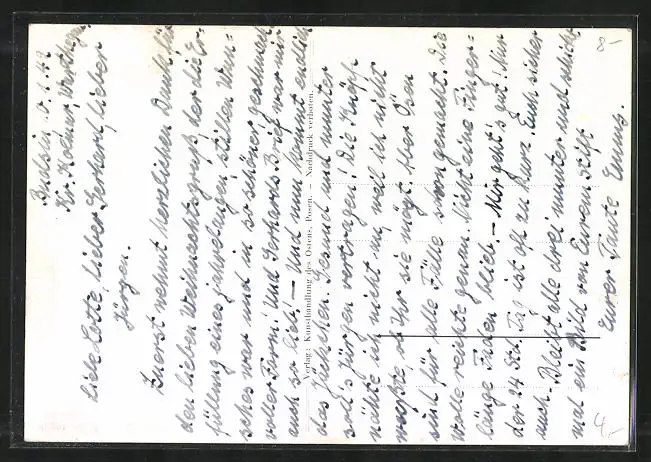 Budsin, 5.1.42
Kr. Kolmar, Warthegau
Liebe Lotte, lieber Gerhard, lieber
Jürgen.
Zuerst nehmt herzlichen Dank für
den lieben Weihnachtsgruß, der die Er-
füllung eines jahrelangen, stillen Wun-
sches war und in so schöner geschmack-
voller Form! Und Gerhards Brief war mir
auch so lieb. – Und nun kommt endlich
das Jäckchen. Gesund und munter
soll's Jürgen vertragen! Die Knöpfe
nähte ich nicht an, weil ich nicht
wußte, ob Ihr sie mögt. Aber Ösen
sind für alle Fälle schon gemacht. Die
Wolle reichte genau. Nicht eine Finger-
länge Faden blieb. – Mir geht's gut! Nur
der 24 Std. Tag ist oft zu kurz. Euch sicher
auch. Bleibt alle drei munter und schickt
mal ein Bild von Eurem Stift
Eurer Tante Emma.
Verlag: Kunsthandlung des Ostens, Posen. – Nachdruck verboten.
8-
4,-